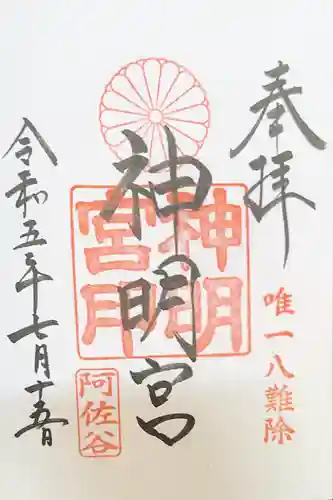 奉拝
唯一八難除
神明宮
神明
宮印
令和五年七月十五日
阿佐谷